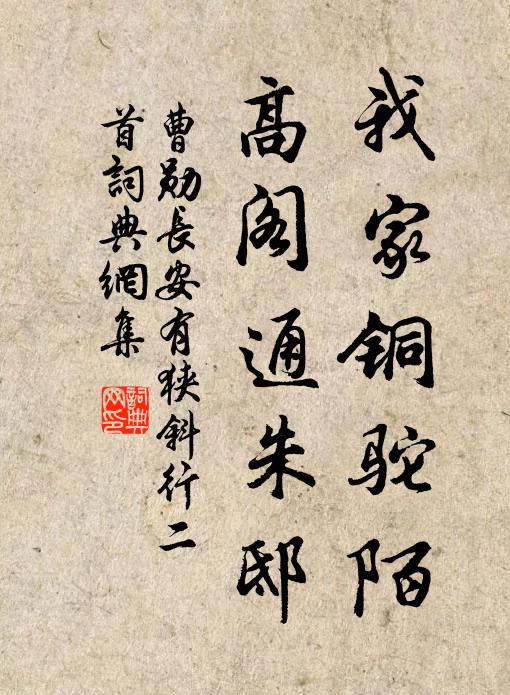 我家铜驼陌
高阁通朱邸
曹勛長安有狹斜行二
首詞典網集
詞典
网印